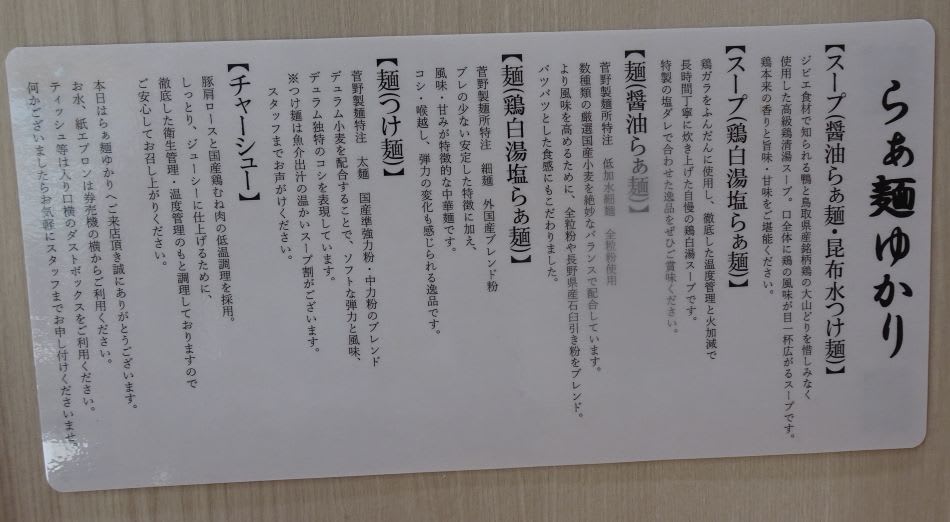 らぁ麺ゆかり
【スープ(醤油らぁ麺・昆布水つけ麺)】
ジビエ食材で知られる鴨と鳥取県産銘柄鶏の大山どりを惜しみなく
使用した高級鶏清湯スープ。口全体に鶏の風味が目一杯広がるスープです。
鶏本来の香りと旨味・甘味をご堪能ください。
【スープ(鶏白湯塩らぁ麺)】
鶏ガラをふんだんに使用し、徹底した温度管理と火加減で
長時間丁寧に炊き上げた自慢の鶏白湯スープです。
特製の塩ダレで合わせた逸品をぜひご賞味ください。
【麺(醤油らぁ麺)】
菅野製麺所特注 低加水細麺 全粒粉使用
数種類の厳選国産小麦を絶妙なバランスで配合しています。
より風味を高めるために、全粒粉や長野県産石臼引き粉をブレンド。
パツパツとした食感にもこだわりました。
【麺(鶏白湯塩らぁ麺)】
菅野製麺所特注 細麺 外国産ブレンド粉
ブレの少ない安定した特徴に加え、
風味・甘みが特徴的な中華麺です。
コシ・喉越し、弾力の変化も感じられる逸品です。
【麺(つけ麺)】
菅野製麺特注 太麺 国産準強力粉・中力粉のブレンド
デュラム小麦を配合することで、ソフトな弾力と風味、
デュラム独特のコシを表現しています。
※つけ麺は魚介出汁の温かいスープ割がございます。
スタッフまでお声がけください。
【チャーシュー】
豚肩ロースと国産鶏むね肉の低温調理を採用。
しっとり、ジューシーに仕上げるために、
徹底した衛生管理・温度管理のもと調理しておりますので
ご安心してお召し上がりください。
本日はらぁ麺ゆかりへご来店頂き誠にありがとうございます。
お水、紙エプロンは券売機の横からご利用ください。
ティッシュ等は入り口横のダストボックスをご利用ください。
何かございましたらお気軽にスタッフまでお申し付けくださいませ。